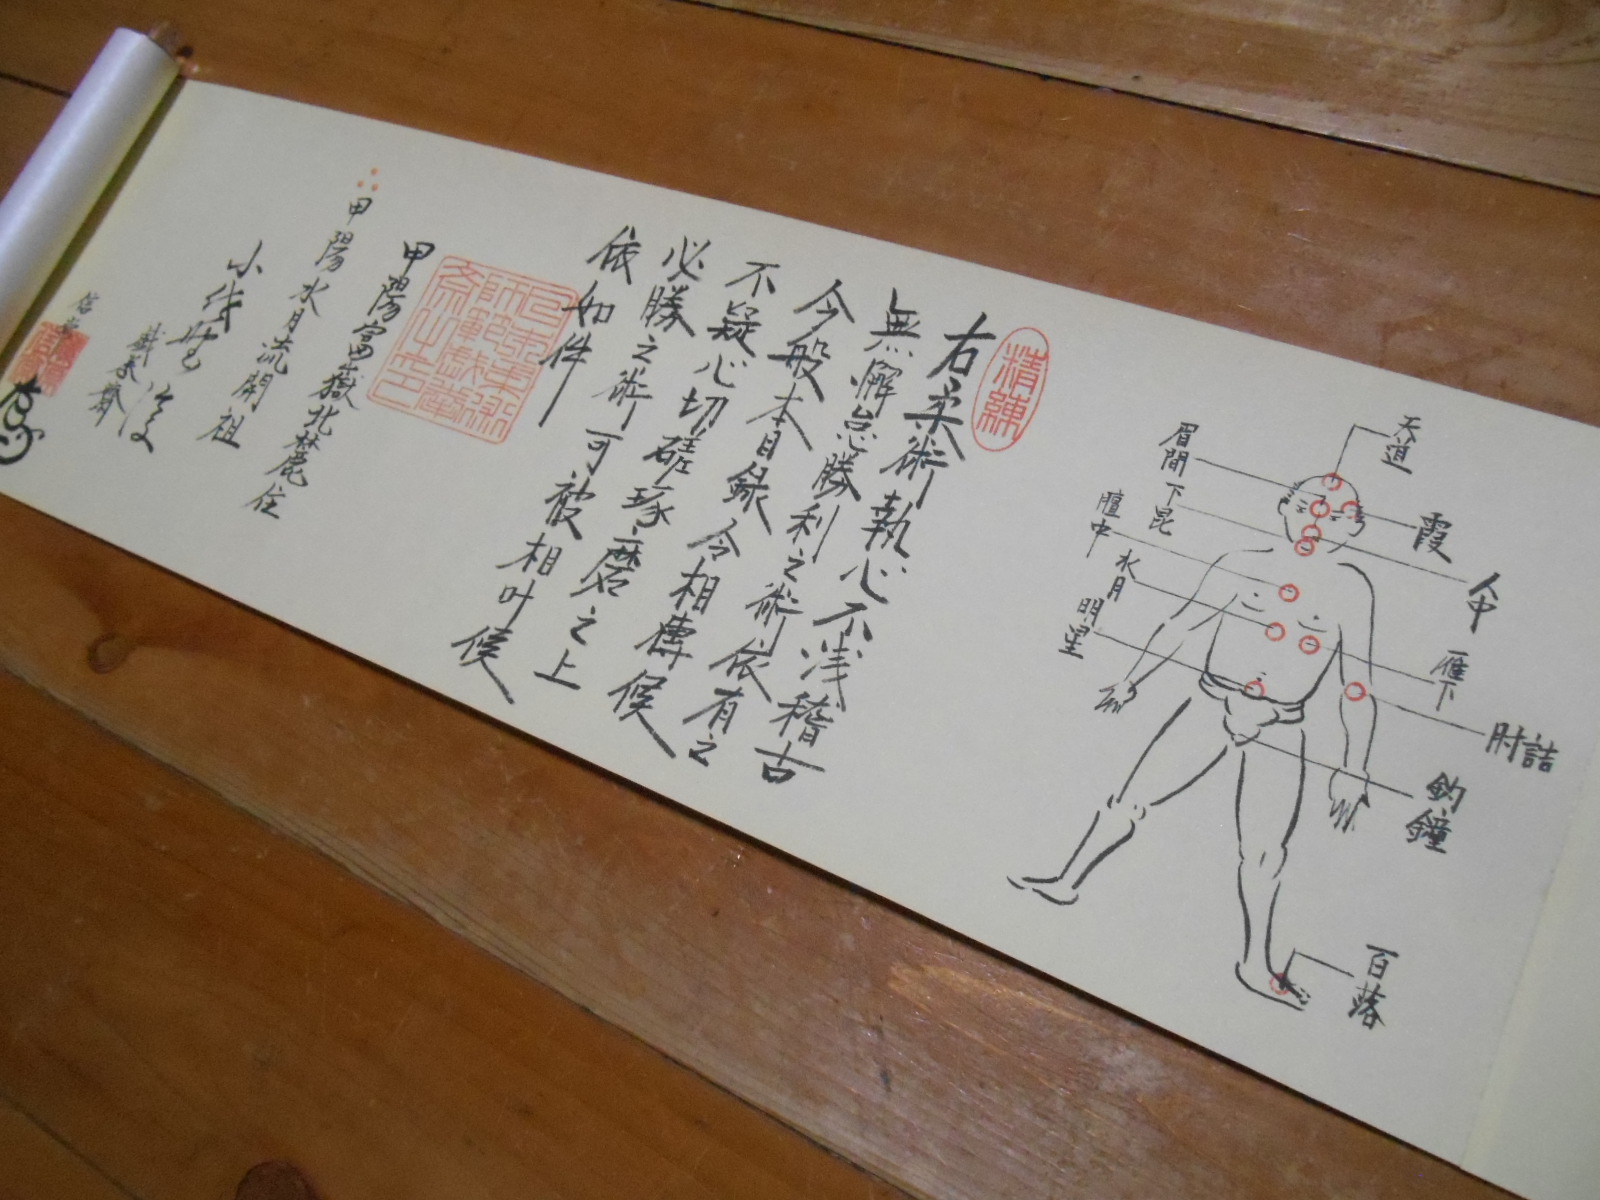 天道
眉間
霞
下昆
人中
膻中
水月
雁下
明星
肘詰
釣鐘
百落
精練
右柔術執心不浅稽古
無懈怠勝利之術依有之
今般本目録令相傳候
不疑心切磋琢磨之上
必勝之術可被相叶候
依如件
甲陽富嶽北麓住
甲陽水月流開祖